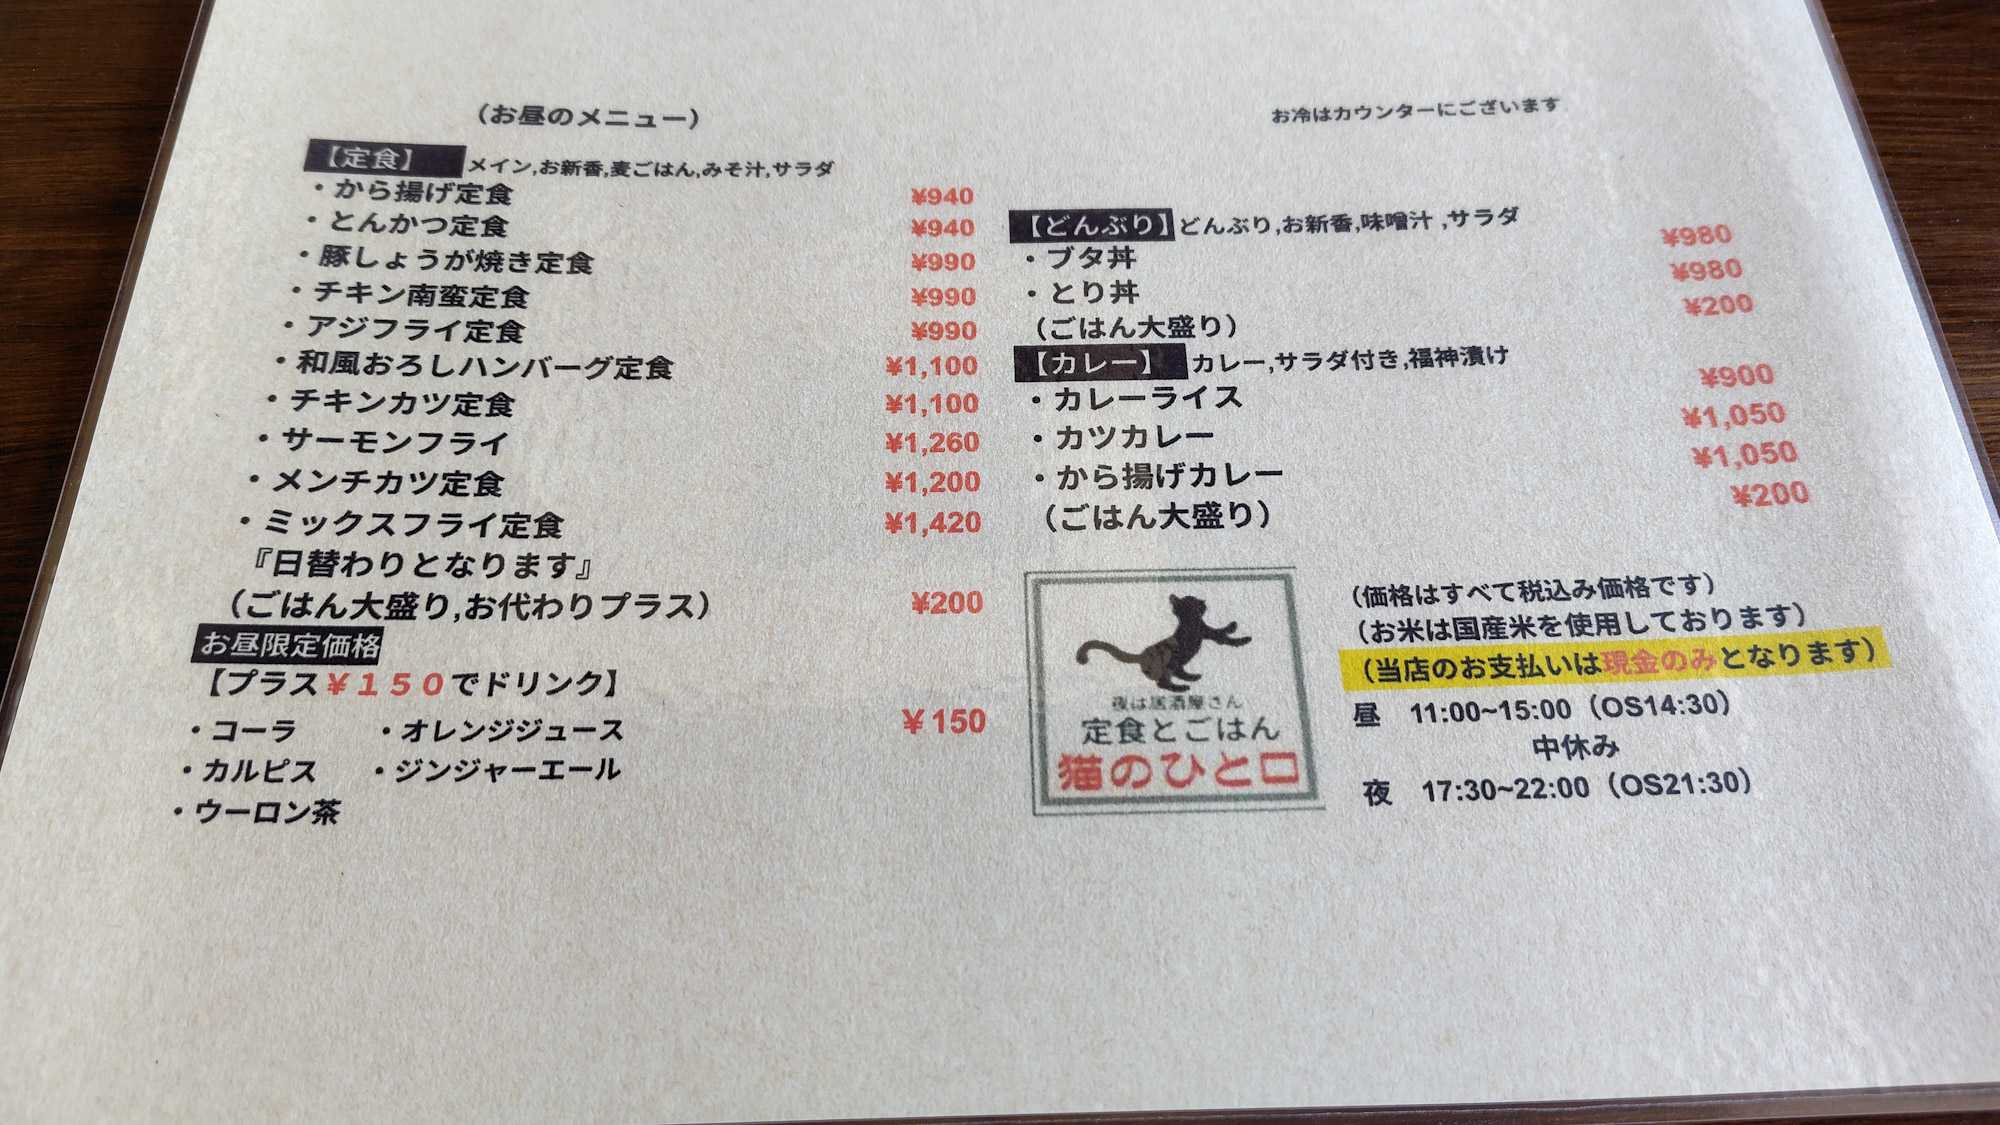 （お昼のメニュー）
【定食】 メイン,お新香,麦ごはん,みそ汁,サラダ
・から揚げ定食 ¥940
・とんかつ定食 ¥940
・豚しょうが焼き定食 ¥990
・チキン南蛮定食 ¥990
・アジフライ定食 ¥990
・和風おろしハンバーグ定食 ¥1,100
・チキンカツ定食 ¥1,100
・サーモンフライ ¥1,260
・メンチカツ定食 ¥1,200
・ミックスフライ定食 ¥1,420
『日替わりとなります』
（ごはん大盛り,お代わりプラス） ¥200
お昼限定価格
【プラス￥１５０でドリンク】
・コーラ ・オレンジジュース ￥150
・カルピス ・ジンジャーエール
・ウーロン茶
お冷はカウンターにございます
【どんぶり】どんぶり,お新香,味噌汁 ,サラダ
・ブタ丼 ¥980
・とり丼 ¥980
（ごはん大盛り） ¥200
【カレー】 カレー,サラダ付き,福神漬け
・カレーライス ¥900
・カツカレー ¥1,050
・から揚げカレー ¥1,050
（ごはん大盛り） ¥200
夜は居酒屋さん
定食とごはん
猫のひと口
（価格はすべて税込み価格です）
（お米は国産米を使用しております）
（当店のお支払いは現金のみとなります）
昼 11:00~15:00（OS14:30）
中休み
夜 17:30~22:00（OS21:30）